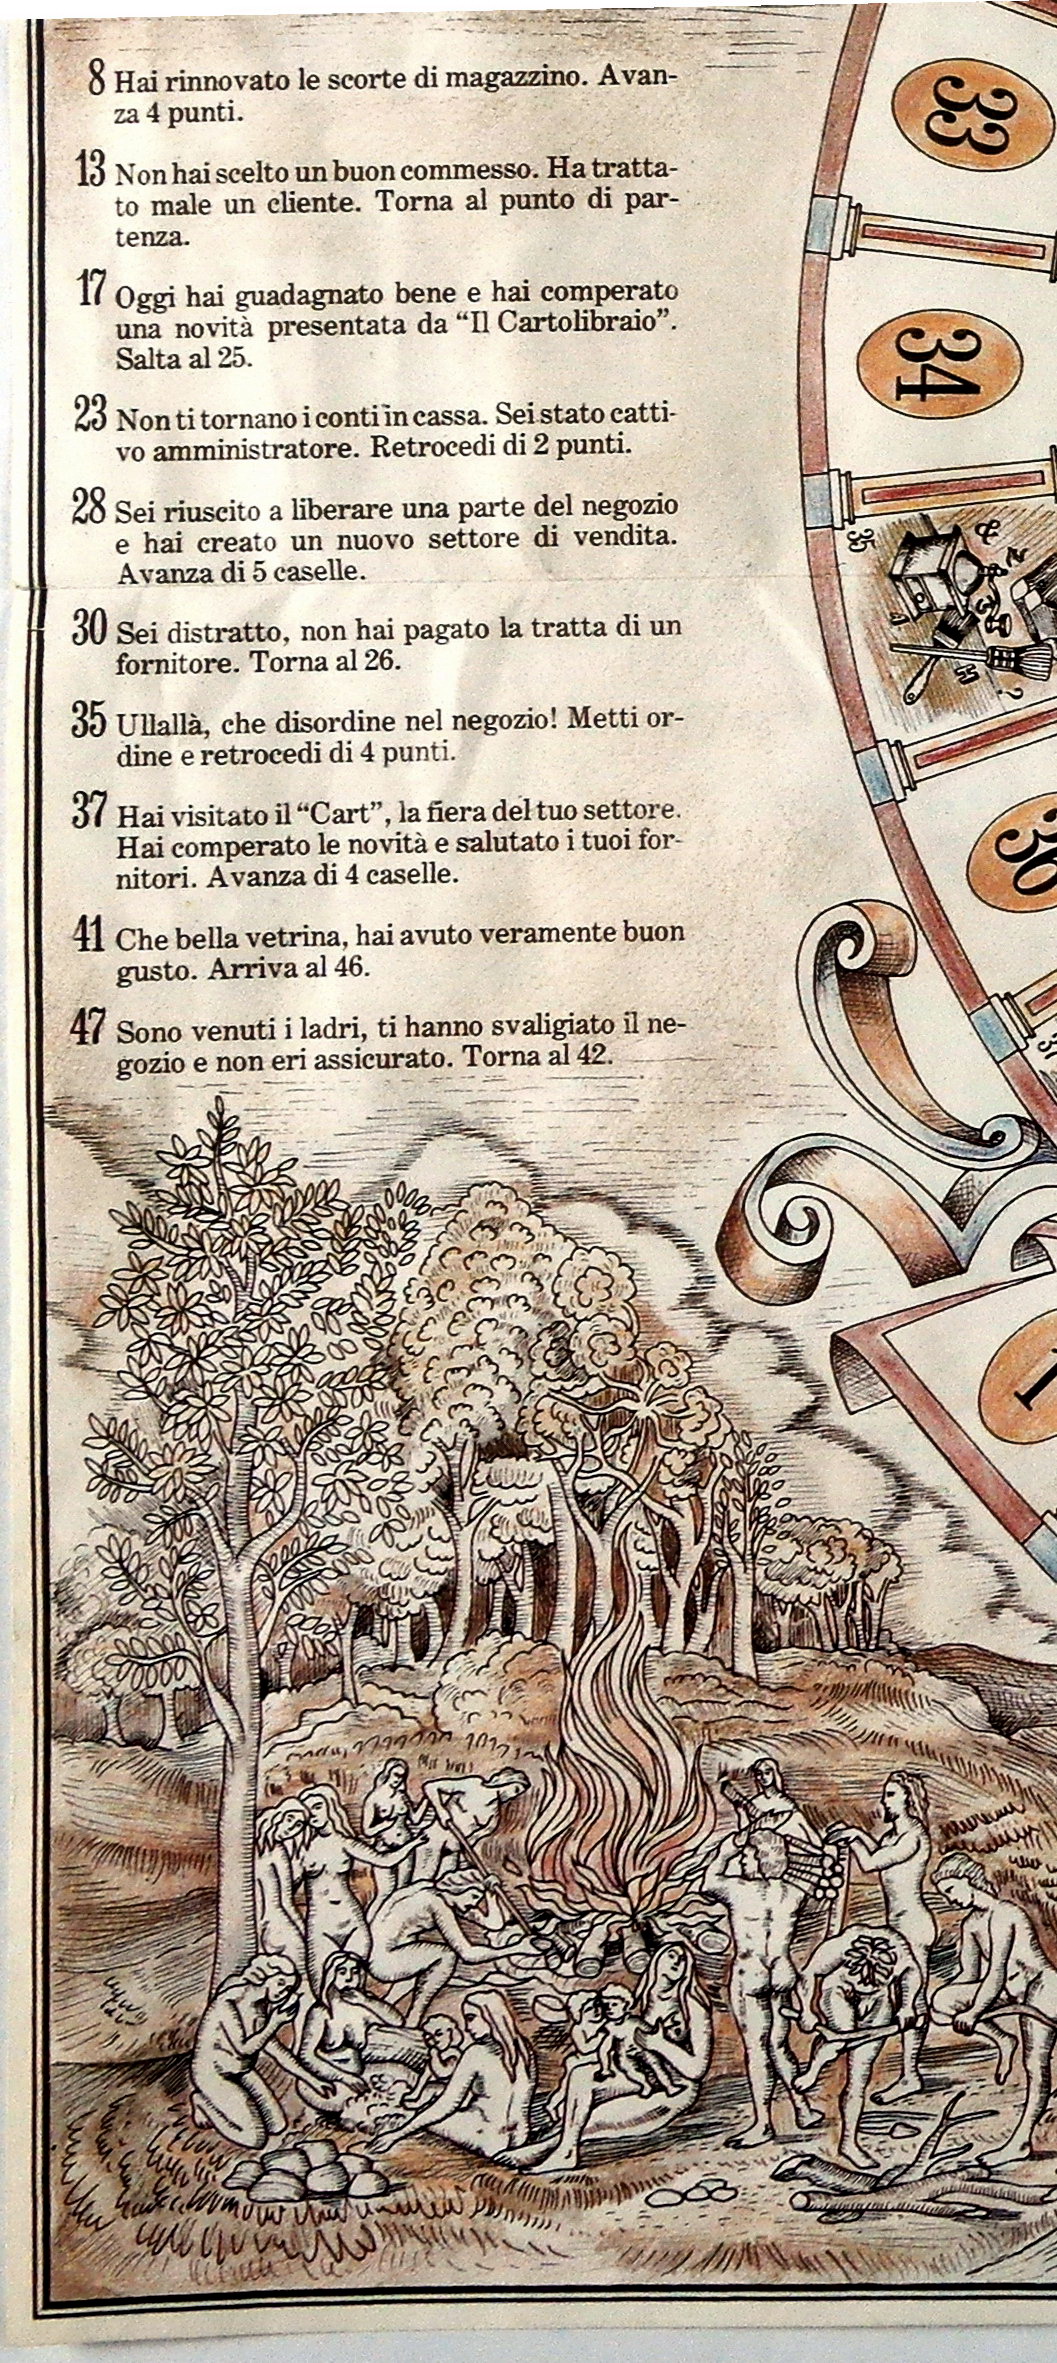 8 Hai rinnovato le scorte di magazzino. Avan-
za 4 punti.
13 Non hai scelto un buon commesso. Ha tratta-
to male un cliente. Torna al punto di par-
tenza.
17 Oggi hai guadagnato bene e hai comperato
una novità presentata da “Il Cartolibraio”.
Salta al 25.
23 Non ti tornano i conti in cassa. Sei stato catti-
vo amministratore. Retrocedi di 2 punti.
28 Sei riuscito a liberare una parte del negozio
e hai creato un nuovo settore di vendita.
Avanza di 5 caselle.
30 Sei distratto, non hai pagato la tratta di un
fornitore. Torna al 26.
35 Ullallà, che disordine nel negozio! Metti or-
dine e retrocedi di 4 punti.
37 Hai visitato il “Cart”, la fiera del tuo settore.
Hai comperato le novità e salutato i tuoi for-
nitori. Avanza di 4 caselle.
41 Che bella vetrina, hai avuto veramente buon
gusto. Arriva al 46.
47 Sono venuti i ladri, ti hanno svaligiato il ne-
gozio e non eri assicurato. Torna al 42.
33
34
35
36
37
1